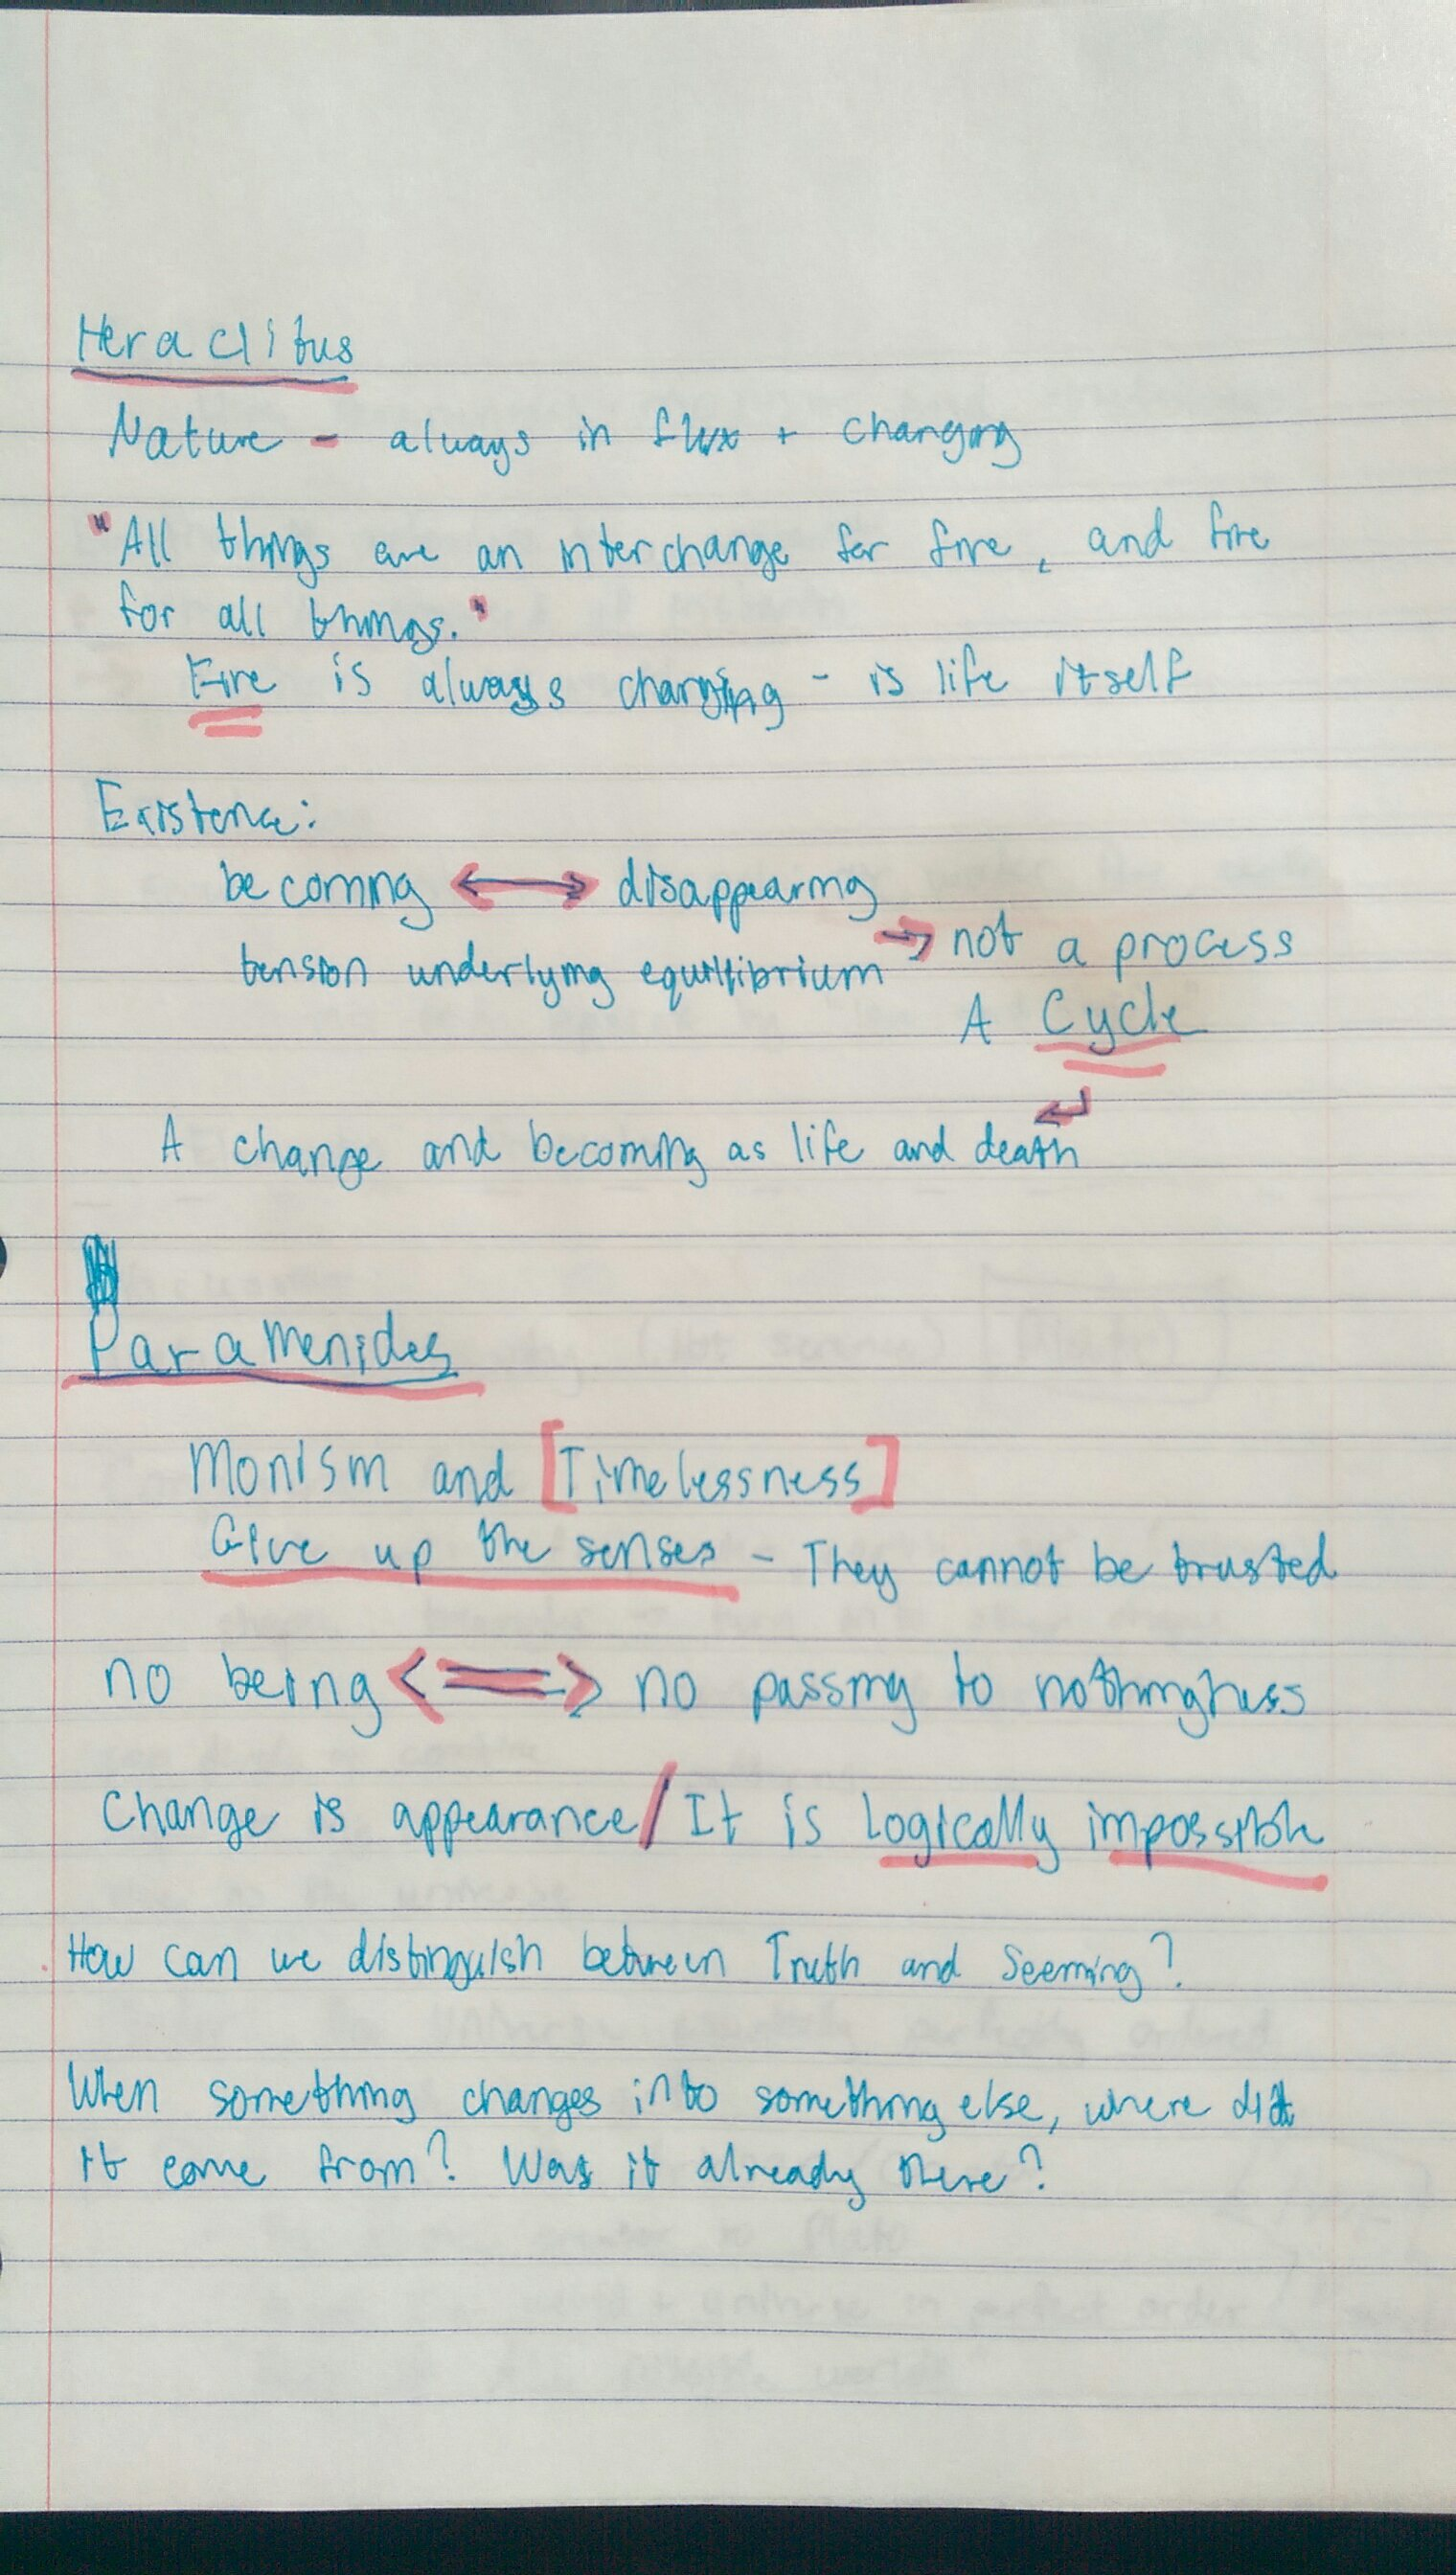 Heraclitus
Nature - always in flux + changing
"All things are an interchange for fire, and fire
for all things."
Fire is always changing - is life itself
Existence:
becoming ↔ disappearing
tension underlying equilibrium → not a process
A Cycle
A change and becoming as life and death
Paramenides
Monism and [Timelessness]
Give up the senses - They cannot be trusted
no being ⇔ no passing to nothingness
Change is appearance / It is logically impossible
How can we distinguish between Truth and Seeming?
When something changes into something else, where did
it come from? Was it already there?